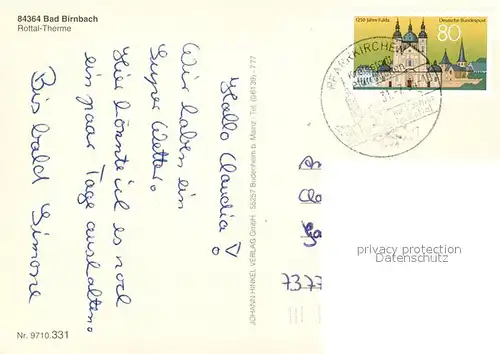 84364 Bad Birnbach
Rottal-Therme
Hallo Claudia!
Wir haben ein
Super Wetter.
Hier könnte ich es noch
ein paar Tage aushalten.
Bis bald Simone
Nr. 9710.331
JOHANN HINKEL VERLAG GmbH · 55257 Budenheim b. Mainz · Tel. (06139) · 777
1250 Jahre Fulda
Deutsche Bundespost
80
PFARRKIRCHEN
privacy protection
Datenschutz
7377